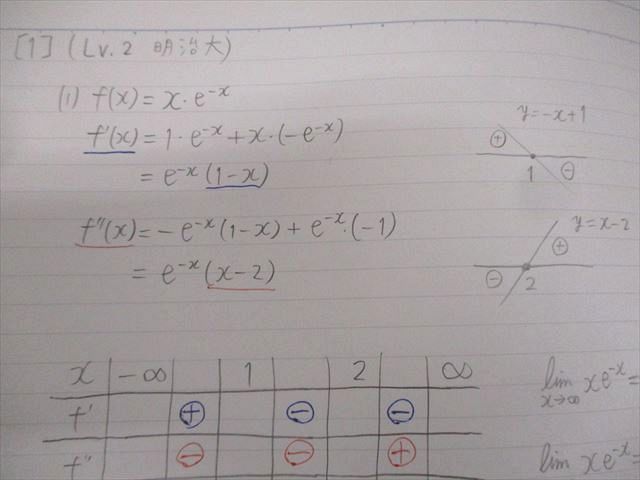 [1] (Lv.2 明治大)
(1) f(x) = x・e^-x
f'(x) = 1・e^-x + x・(-e^-x)
= e^-x (1-x)
f''(x) = -e^-x (1-x) + e^-x・(-1)
= e^-x (x-2)
y=-x+1
⊕
1 ⊖
y=x-2
⊕
⊖ 2
x -∞ 1 2 ∞
f' ⊕ ⊖ ⊖
f'' ⊖ ⊖ ⊕
lim xe^-x =
x→∞
lim xe^-x =